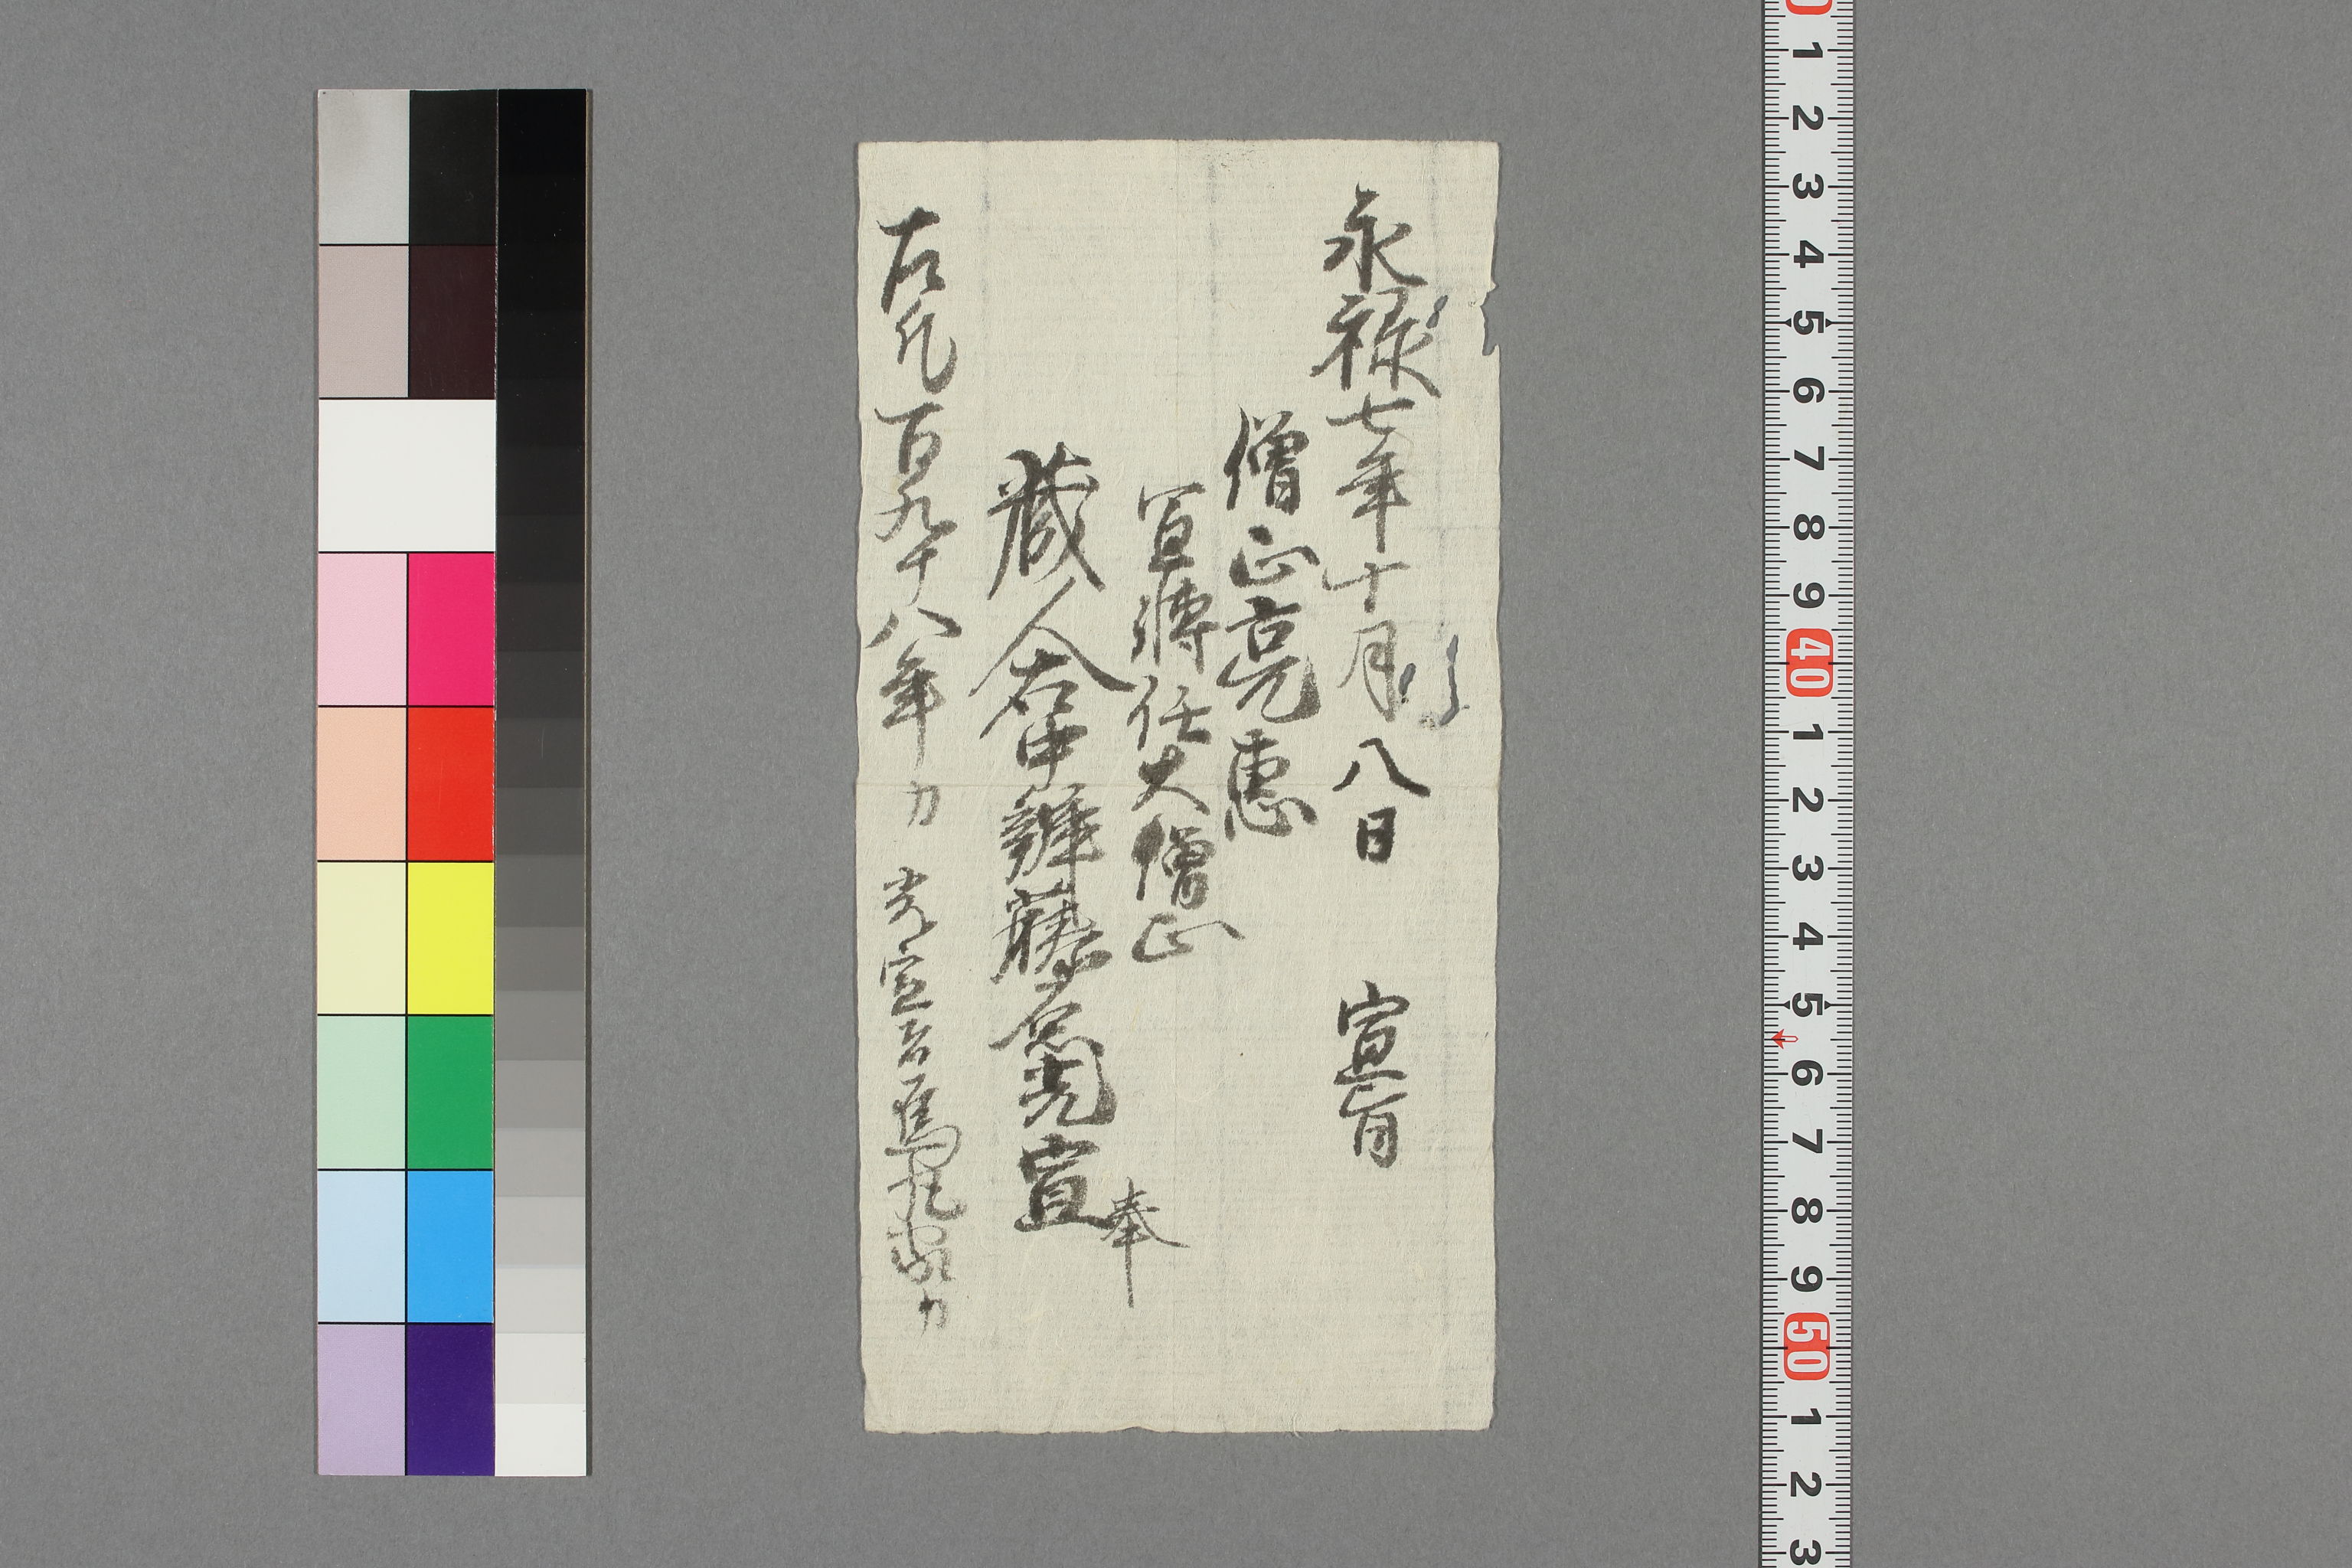 永禄七年十月八日　宣旨
僧正亮恵
宣轉任大僧正
藏人右中辨藤原光宣奉
右凡百九十八年カ　光宣者烏丸家カ
1
2
3
4
5
6
7
8
9
40
1
2
3
4
5
6
7
8
9
50
1
2
3